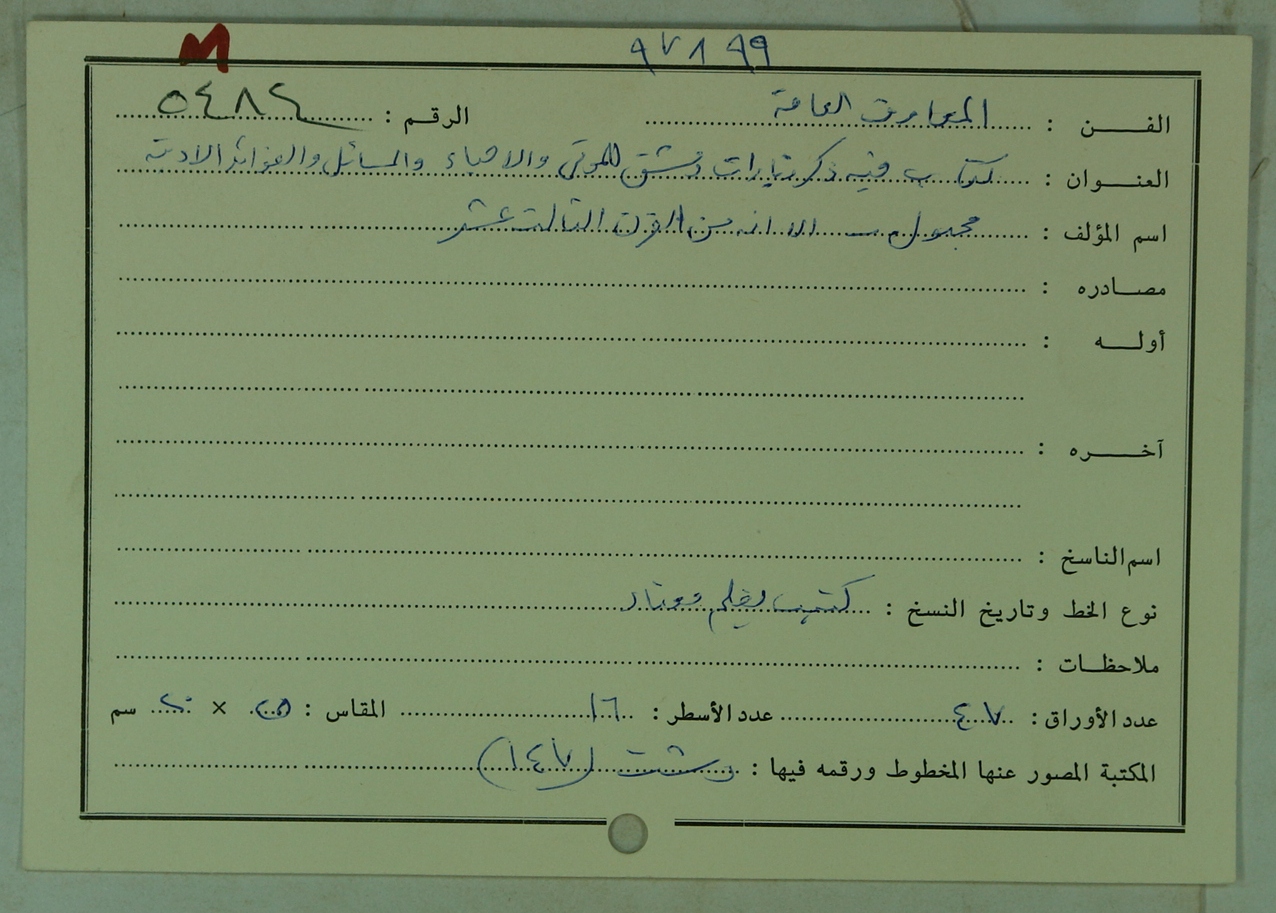 M ٩٧١٩٩
الفن : المعارف العامة الرقم : ٥٤٨٤
العنوان : كتاب فيه ذكر زيارات دمشق للموتى والاحياء والمسائل والفوائد الادبية
اسم المؤلف : مجهول الا انه من القرن الثالث عشر
مصادره :
أوله :
آخره :
اسم الناسخ :
نوع الخط وتاريخ النسخ : كتبت بقلم معتاد
ملاحظات :
عدد الأوراق : ٤٧ عدد الأسطر : ١٦ المقاس : × ٢٠ سم
المكتبة المصور عنها المخطوط ورقمه فيها : (١٤٧)